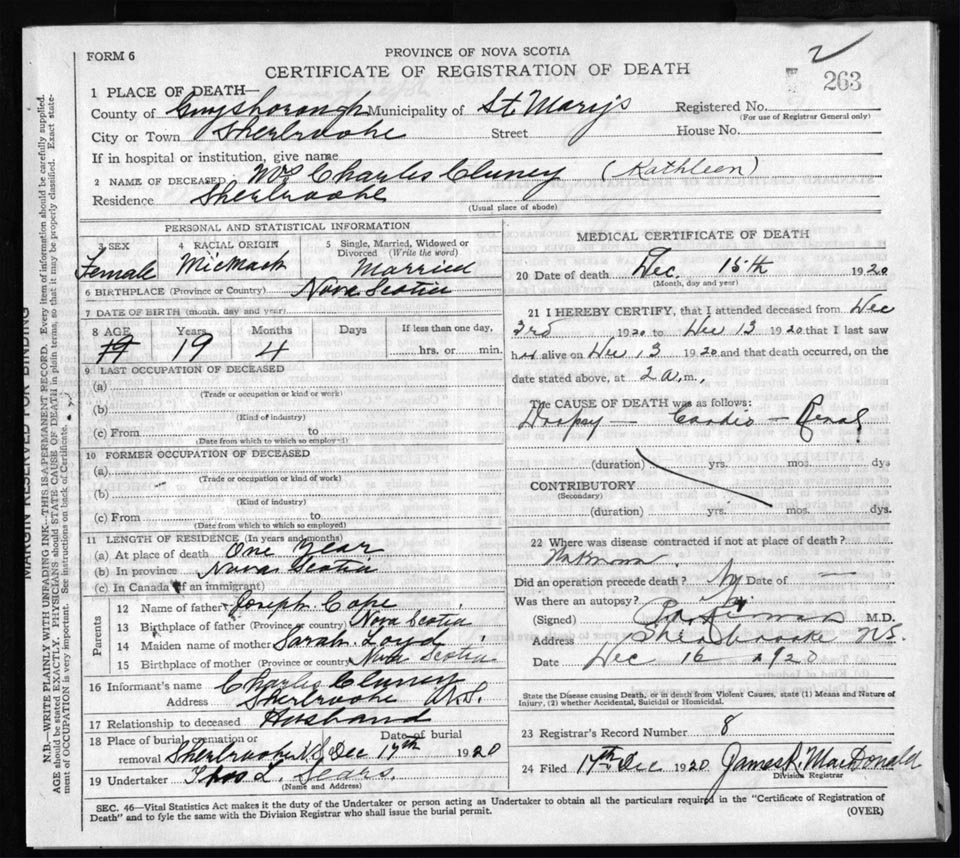 2
FORM 6
PROVINCE OF NOVA SCOTIA
CERTIFICATE OF REGISTRATION OF DEATH
263
1 PLACE OF DEATH—
County of Guysborough Municipality of St. Mary's Registered No.
(For use of Registrar General only)
City or Town Sherbrooke Street House No.
If in hospital or institution, give name
2 NAME OF DECEASED Mrs Charles Cluney (Kathleen)
Residence Sherbrooke
(Usual place of abode)
PERSONAL AND STATISTICAL INFORMATION
3 SEX 4 RACIAL ORIGIN 5 Single, Married, Widowed or Divorced (Write the word)
Female MicMack Married
6 BIRTHPLACE (Province or Country) Nova Scotia
7 DATE OF BIRTH (month, day and year)
8 AGE Years Months Days If less than one day,
19 4 hrs. or min.
9 LAST OCCUPATION OF DECEASED
(a)
(Trade or occupation or kind of work)
(b)
(Kind of industry)
(c) From to
(Date from which to which so employed)
10 FORMER OCCUPATION OF DECEASED
(a)
(Trade or occupation or kind of work)
(b)
(Kind of industry)
(c) From to
(Dates from which to which so employed)
11 LENGTH OF RESIDENCE (In years and months)
(a) At place of death One Year
(b) In province Nova Scotia
(c) In Canada (if an immigrant)
Parents
12 Name of father Joseph Cope
13 Birthplace of father (Province or country) Nova Scotia
14 Maiden name of mother Sarah Loyd
15 Birthplace of mother (Province or country) Nova Scotia
16 Informant's name Charles Cluney
Address Sherbrooke N.S.
17 Relationship to deceased Husband
18 Place of burial, cremation or removal Date of burial
Sherbrooke N.S. Dec 17th 1920
19 Undertaker Thos L. Sears.
(Name and Address)
MEDICAL CERTIFICATE OF DEATH
20 Date of death Dec. 15th 1920
(Month, day and year)
21 I HEREBY CERTIFY, that I attended deceased from Dec
3rd 1920 to Dec 13 1920 that I last saw
her alive on Dec 13 1920 and that death occurred, on the
date stated above, at 2 a.m.,
The CAUSE OF DEATH was as follows:
Dropsy — Cardio — Renal
(duration) yrs. mos. dys
CONTRIBUTORY
(Secondary)
(duration) yrs. mos. dys.
22 Where was disease contracted if not at place of death?
Unknown
Did an operation precede death? No Date of —
Was there an autopsy? No
(Signed) M.D.
Address Sherbrooke N.S.
Date Dec 16 1920
State the Disease causing Death, or in death from Violent Causes, state (1) Means and Nature of
Injury, (2) whether Accidental, Suicidal or Homicidal.
23 Registrar's Record Number 8
24 Filed 17th Dec 1920 James R. MacDonald
Division Registrar
SEC. 46—Vital Statistics Act makes it the duty of the Undertaker or person acting as Undertaker to obtain all the particulars required in the "Certificate of Registration of
Death" and to fyle the same with the Division Registrar who shall issue the burial permit.
(OVER)
MARGIN RESERVED FOR BINDING
N.B.—WRITE PLAINLY WITH UNFADING INK—THIS IS A PERMANENT RECORD. Every item of information should be carefully supplied.
AGE should be stated EXACTLY. PHYSICIANS should STATE CAUSE OF DEATH in plain terms, so that it may be properly classified. Exact state-
ment of OCCUPATION is very important. See instructions on back of Certificate.